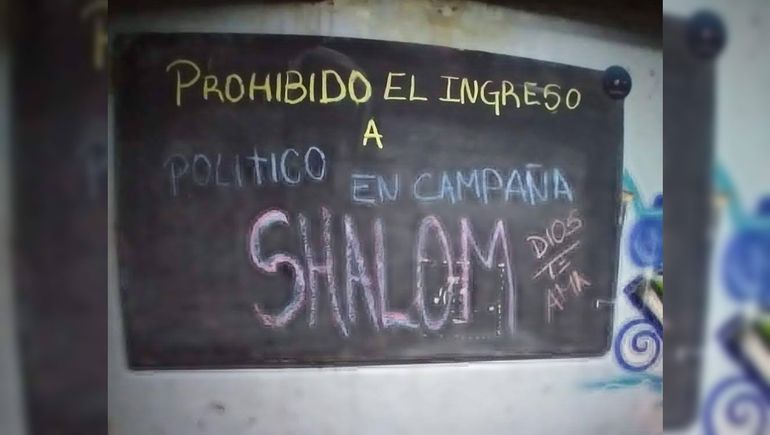 PROHIBIDO EL INGRESO
A
POLITICO EN CAMPAÑA
SHALOM
DIOS
TE
AMA